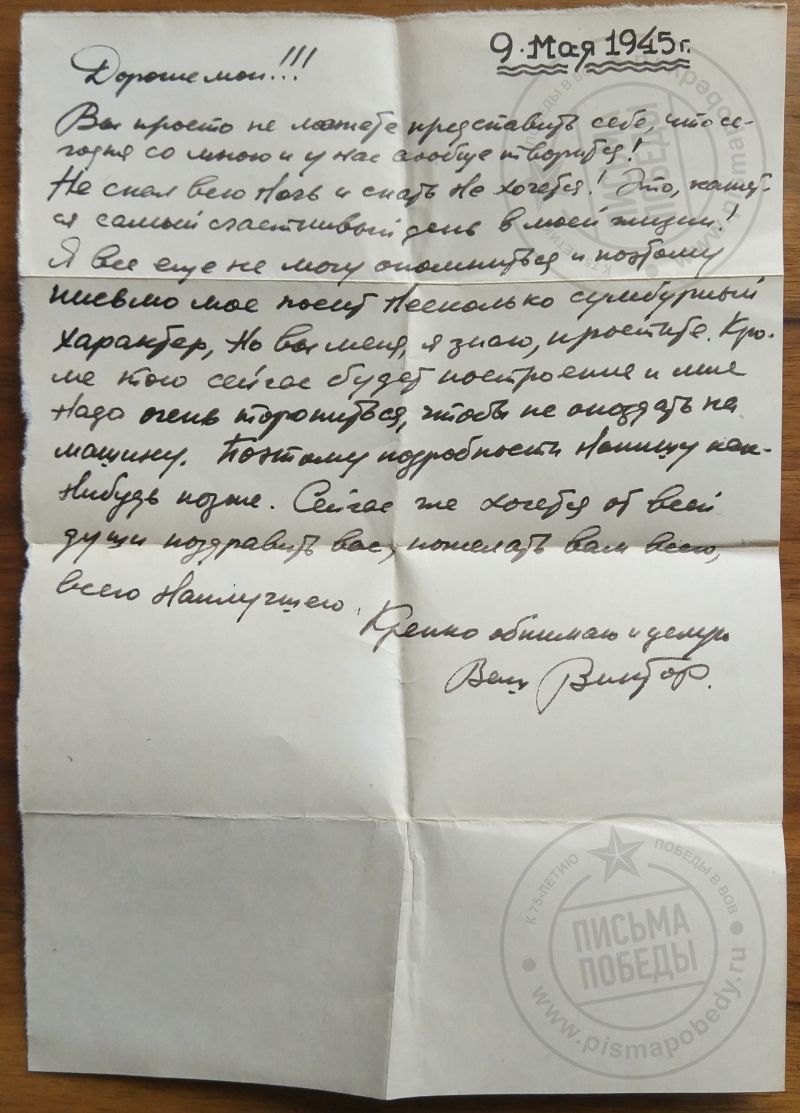 9. Мая 1945 г.
Дорогие мои!!!
Вы просто не можете представить себе, что се-
годня со мною и у нас вообще творится!
Не спал всю ночь и спать не хочется! Это, кажет-
ся самый счастливый день в моей жизни!
Я все еще не могу опомниться и поэтому
письмо мое носит несколько сумбурный
характер, но вы меня, я знаю, простите. Кро-
ме того сейчас будет построение и мне
надо очень торопиться, чтобы не опоздать на
машину. Поэтому подробности напишу как-
нибудь позже. Сейчас же хочется от всей
души поздравить вас, пожелать вам всего,
всего наилучшего.
Крепко обнимаю и целую
Ваш Виктор.
К 75-ЛЕТИЮ ПОБЕДЫ В ВОВ
ПИСЬМА
ПОБЕДЫ
www.pismapobedy.ru